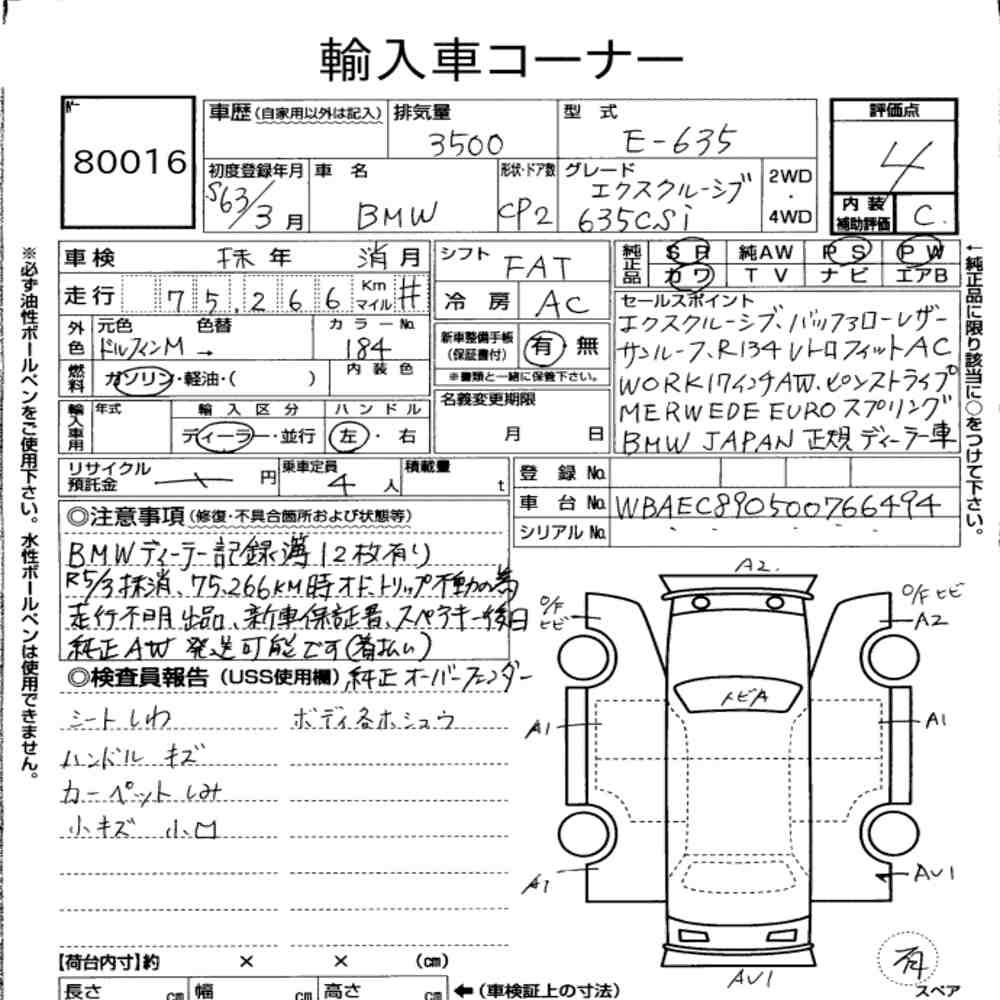 輸入車コーナー
No.
80016
車歴(自家用以外は記入)
排気量
3500
型 式
E-635
評価点
4
初度登録年月
S63/3月
車 名
BMW
形状・ドア数
CP2
グレード
エクスクルーシブ
635CSi
2WD
・
4WD
内 装
補助評価
C
車検
抹年 消月
シフト
FAT
純正品
SR 純AW PS PW
カワ TV ナビ エアB
走行
75,266
Km
マイル
#
冷 房
AC
セールスポイント
エクスクルーシブ、バッファローレザー
サンルーフ、R134レトロフィットAC
WORK17インチAW、ピンストライプ
MERWEDE EUROスプリング
BMW JAPAN 正規ディーラー車
外色
元色 色替
ドルフィンM →
カラーNo.
184
新車整備手帳
(保証書付)
有・無
※書類と一緒に保管下さい。
燃料
ガソリン・軽油・( )
内 装 色
輸入車用
年式
輸 入 区 分
ディーラー・並行
ハ ン ド ル
左・右
名義変更期限
月 日
リサイクル
預託金
円
乗車定員
4人
積載量
t
登 録 No.
車 台 No.
WBAEC890500766494
シリアル No.
◎注意事項(修復・不具合箇所および状態等)
BMWディーラー記録簿12枚有り
R5/3抹消、75,266KM時オド、トリップ不動の為
走行不明出品、新車保証書、スペアキー後日
純正AW 発送可能です(着払い)
◎検査員報告(USS使用欄)
純正オーバーフェンダー
シートしわ
ボディ各ホシュウ
ハンドル キズ
カーペットしみ
小キズ 小凹
A2
O/F ヒビ
O/F ヒビ
A2
トビA
A1
A1
A1
AU1
AU1
有
スペア
【荷台内寸】約 × × (cm)
長さ cm
幅 cm
高さ cm
←(車検証上の寸法)
※必ず油性ボールペンをご使用下さい。水性ボールペンは使用できません。
←純正品に限り該当に○をつけて下さい。